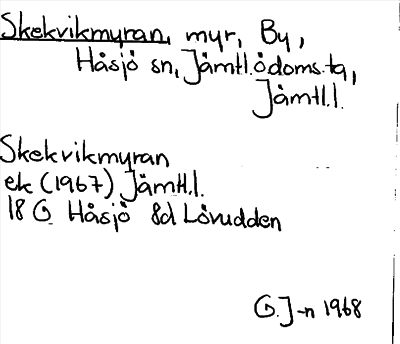 Skekvikmyran, myr, By,
Håsjö sn, Jämtl.ödoms.tg,
Jämtl.l.
Skekvikmyran
ek (1967) Jämtl.l.
18 G Håsjö 8d Lövudden
G.J-n 1968